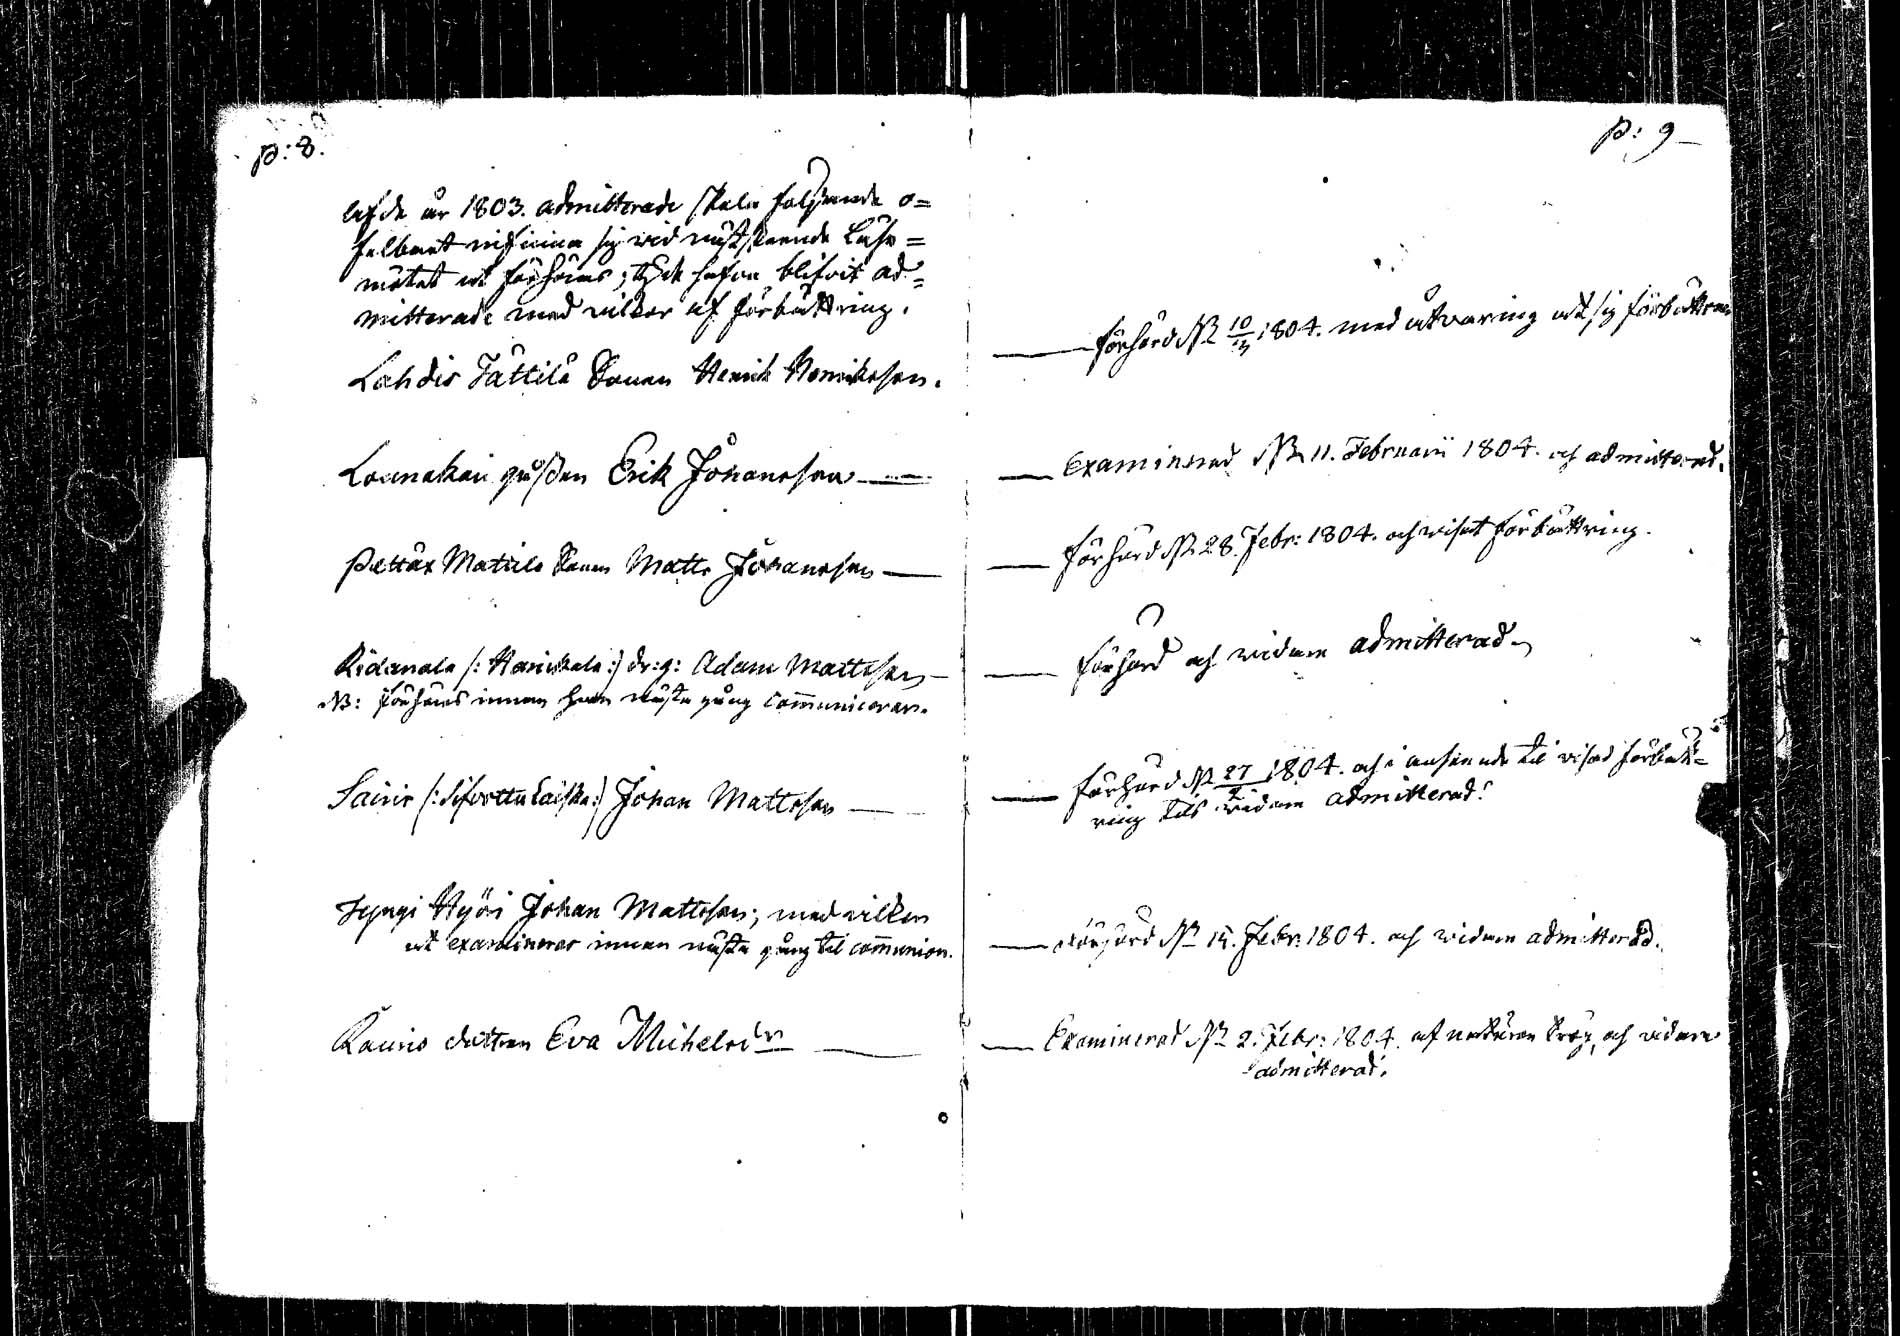 p: 8.
af de år 1803. admitterade skola följande o=
felbart infinna sig vid nästkommande Läse=
mötet at förhöras; ty de hafva blifvit ad=
mitterade med vilkor af förbättring.
Lahdis Jättilä Sonen Henrik Henriksson.
Lounakai gossen Erik Johansson
Pättäx Mattila Sonen Matts Johansson
Ridanala /: Harickala :/ dr:g: Adam Mattsson
NB: förhöres innan han nästa gång communicerar.
Sairis /: :/ Johan Mattsson
Hyöri Johan Mattsson; med vilkor
at examineras innan nästa gång til communion.
Kauris dottren Eva Michelsdr
p: 9
förhörd d. 10/ 1804. med åtvarning at sig förbättra
Examinerad d. 11. Februarii 1804. och admitterad.
förhörd d. 28. Febr: 1804. och visat förbättring.
förhörd och vidare admitterad
förhörd d. 27/2 1804. och i anseende til visad förbätt=
ring vidare admitterad.
förhörd d. 15. Febr: 1804. och vidare admitterad.
Examinerad d. 2. Febr: 1804. af och vidare
admitterad.